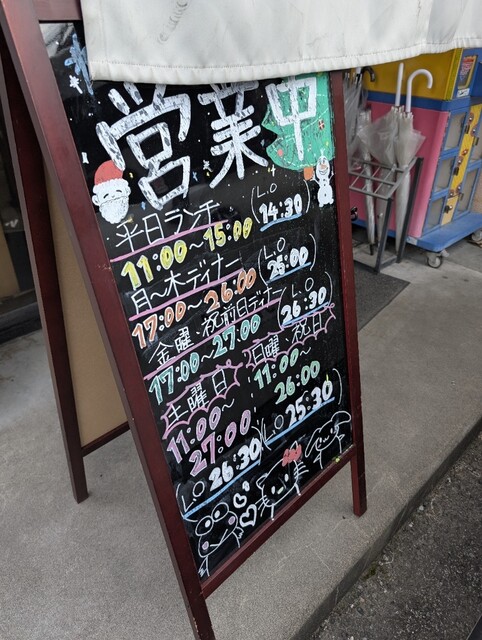 営業中
平日ランチ (L.O 14:30)
11:00~15:00
月~木ディナー (L.O 25:00)
17:00~26:00
金曜・祝前日ディナー (L.O 26:30)
17:00~27:00
土曜日
11:00~
27:00
(L.O 26:30)
日曜・祝日
11:00~
26:00
(L.O 25:30)